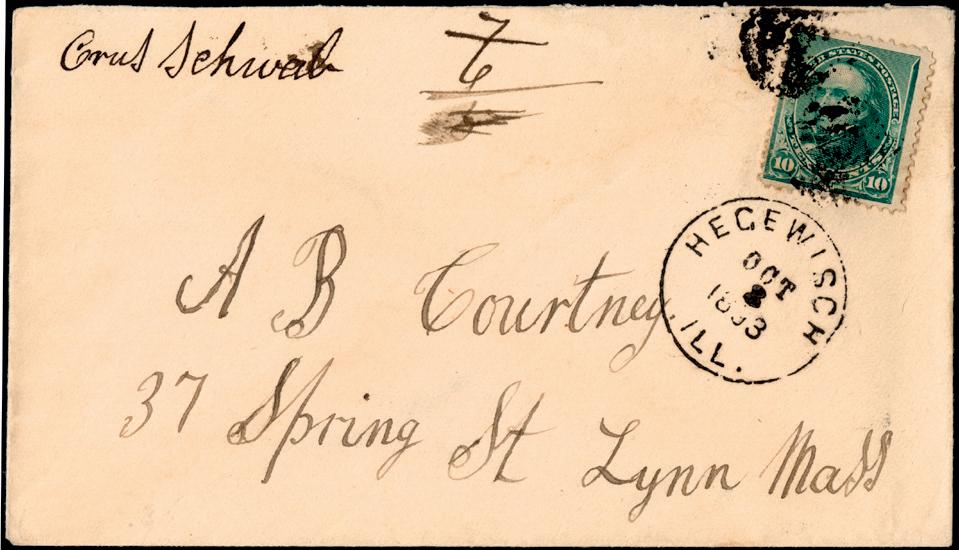 Crus Schwab
7
6
UNITED STATES POSTAGE
10
10
HEGEWISCH
OCT
1893
ILL.
A B Courtney.
37 Spring St Lynn Mass